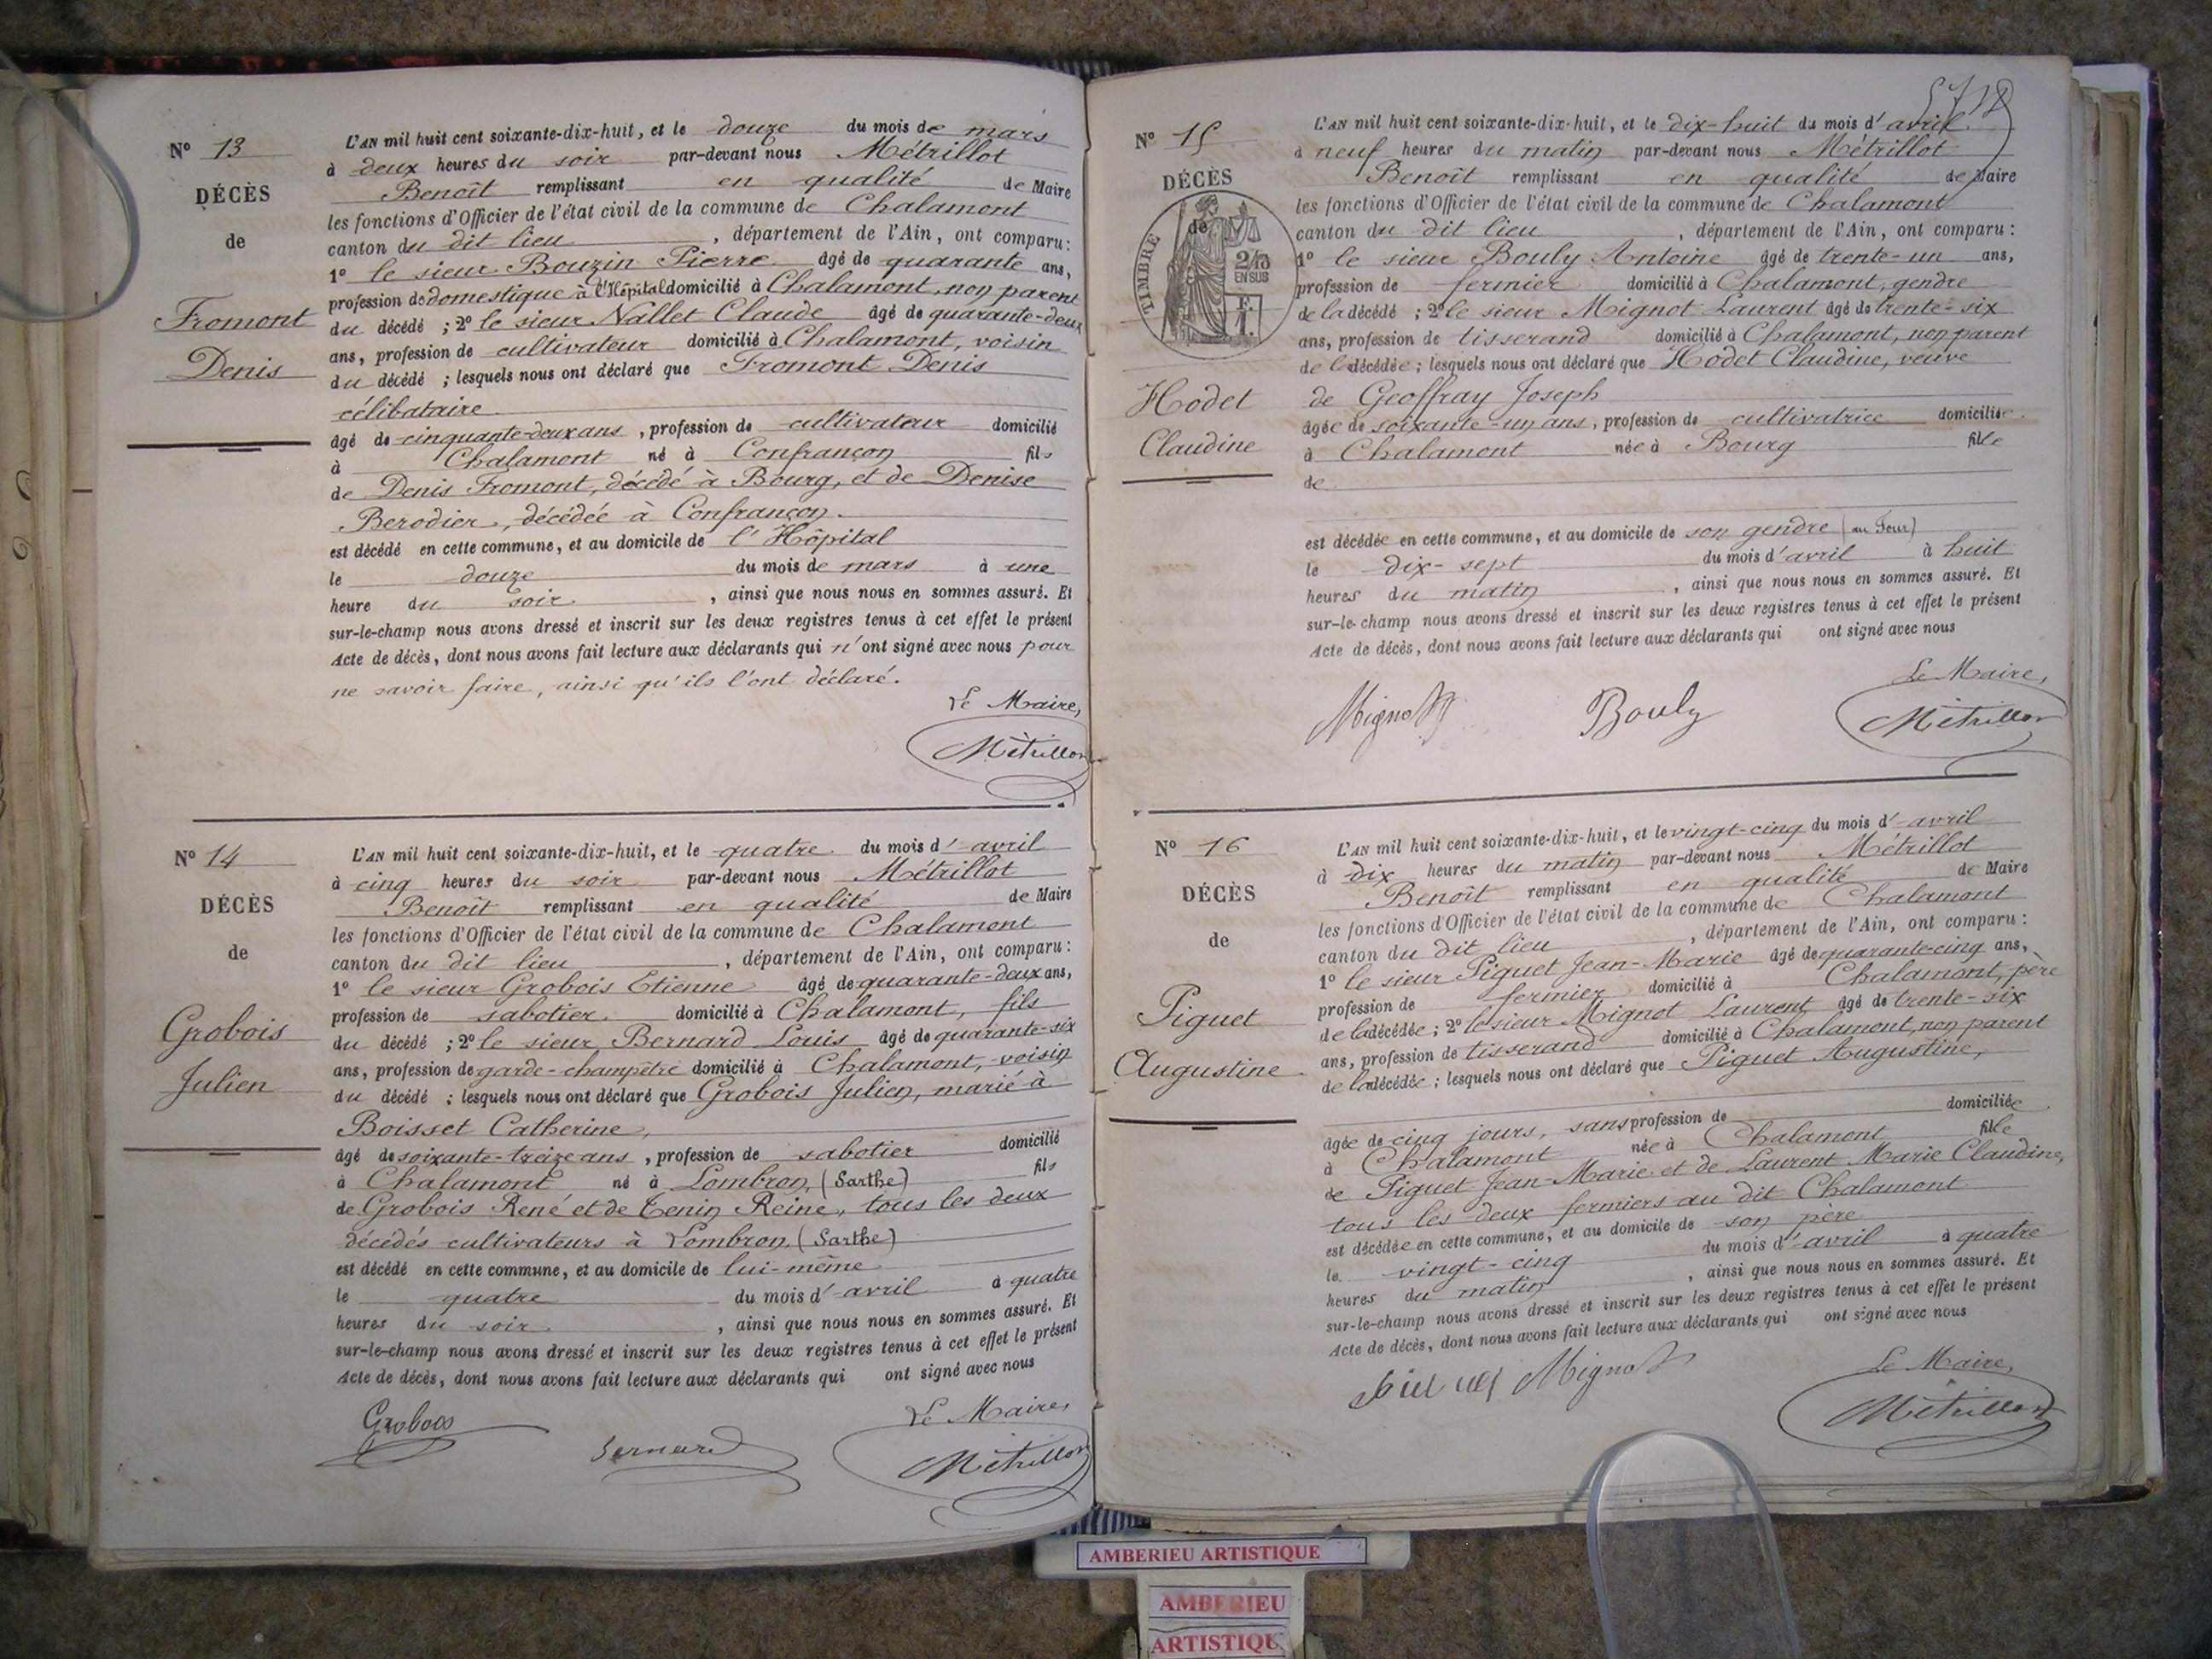 N° 13
DÉCÈS
de
Fromont
Denis
L'AN mil huit cent soixante-dix-huit, et le douze du mois de mars
à deux heures du soir par-devant nous Métrillot
Benoît remplissant en qualité de Maire
les fonctions d'Officier de l'état civil de la commune de Chalamont
canton du dit lieu , département de l'Ain, ont comparu :
1° le sieur Bouzin Pierre âgé de quarante ans,
profession de domestique à l'Hôpital domicilié à Chalamont, non parent
du décédé ; 2° le sieur Nallet Claude âgé de quarante-deux
ans, profession de cultivateur domicilié à Chalamont, voisin
du décédé ; lesquels nous ont déclaré que Fromont Denis
célibataire
âgé de cinquante-deux ans , profession de cultivateur domicilié
à Chalamont né à Confrançon fils
de Denis Fromont, décédé à Bourg, et de Denise
Berodier, décédée à Confrançon.
est décédé en cette commune, et au domicile de l'Hôpital
le douze du mois de mars à une
heure du soir , ainsi que nous nous en sommes assuré. Et
sur-le-champ nous avons dressé et inscrit sur les deux registres tenus à cet effet le présent
Acte de décès, dont nous avons fait lecture aux déclarants qui n'ont signé avec nous pour
ne savoir faire, ainsi qu'ils l'ont déclaré.
Le Maire,
Métrillot
N° 14
DÉCÈS
de
Grobois
Julien
L'AN mil huit cent soixante-dix-huit, et le quatre du mois d'avril
à cinq heures du soir par-devant nous Métrillot
Benoît remplissant en qualité de Maire
les fonctions d'Officier de l'état civil de la commune de Chalamont
canton du dit lieu , département de l'Ain, ont comparu :
1° le sieur Grobois Etienne âgé de quarante-deux ans,
profession de sabotier domicilié à Chalamont, fils
du décédé ; 2° le sieur Bernard Louis âgé de quarante-six
ans, profession de garde-champêtre domicilié à Chalamont, voisin
du décédé ; lesquels nous ont déclaré que Grobois Julien, marié à
Boisset Catherine,
âgé de soixante-treize ans , profession de sabotier domicilié
à Chalamont né à Lombron, (Sarthe) fils
de Grobois René et de Tenin Reine, tous les deux
décédés cultivateurs à Lombron, (Sarthe)
est décédé en cette commune, et au domicile de lui-même
le quatre du mois d'avril à quatre
heures du soir , ainsi que nous nous en sommes assuré. Et
sur-le-champ nous avons dressé et inscrit sur les deux registres tenus à cet effet le présent
Acte de décès, dont nous avons fait lecture aux déclarants qui ont signé avec nous
Le Maire,
Grobois Bernard Métrillot
N° 15
DÉCÈS
de
TIMBRE
2/10
EN SUS
Hodet
Claudine
L'AN mil huit cent soixante-dix-huit, et le dix-huit du mois d'avril
à neuf heures du matin par-devant nous Métrillot
Benoît remplissant en qualité de Maire
les fonctions d'Officier de l'état civil de la commune de Chalamont
canton du dit lieu , département de l'Ain, ont comparu :
1° le sieur Bouly Antoine âgé de trente-un ans,
profession de fermier domicilié à Chalamont, gendre
de la décédé ; 2° le sieur Mignot Laurent âgé de trente-six
ans, profession de tisserand domicilié à Chalamont, non parent
de la décédée ; lesquels nous ont déclaré que Hodet Claudine, veuve
de Geoffray Joseph
âgée de soixante-un ans, profession de cultivatrice domiciliée
à Chalamont née à Bourg fille
de
est décédée en cette commune, et au domicile de son gendre (au Four)
le dix-sept du mois d'avril à huit
heures du matin , ainsi que nous nous en sommes assuré. Et
sur-le-champ nous avons dressé et inscrit sur les deux registres tenus à cet effet le présent
Acte de décès, dont nous avons fait lecture aux déclarants qui ont signé avec nous
Le Maire,
Mignot Bouly Métrillot
N° 16
DÉCÈS
de
Piguet
Augustine
L'AN mil huit cent soixante-dix-huit, et le vingt-cinq du mois d'avril
à dix heures du matin par-devant nous Métrillot
Benoît remplissant en qualité de Maire
les fonctions d'Officier de l'état civil de la commune de Chalamont
canton du dit lieu , département de l'Ain, ont comparu :
1° le sieur Piguet Jean-Marie âgé de quarante-cinq ans,
profession de fermier domicilié à Chalamont, père
de la décédée ; 2° le sieur Mignot Laurent âgé de trente-six
ans, profession de tisserand domicilié à Chalamont, non parent
de la décédée ; lesquels nous ont déclaré que Piguet Augustine,
âgée de cinq jours, sans profession de domiciliée
à Chalamont née à Chalamont fille
de Piguet Jean-Marie et de Laurent Marie Claudine,
tous les deux fermiers au dit Chalamont
est décédée en cette commune, et au domicile de son père
le vingt-cinq du mois d'avril à quatre
heures du matin , ainsi que nous nous en sommes assuré. Et
sur-le-champ nous avons dressé et inscrit sur les deux registres tenus à cet effet le présent
Acte de décès, dont nous avons fait lecture aux déclarants qui ont signé avec nous
Le Maire,
Mignot Métrillot
AMBERIEU ARTISTIQUE
AMBERIEU
ARTISTIQUE